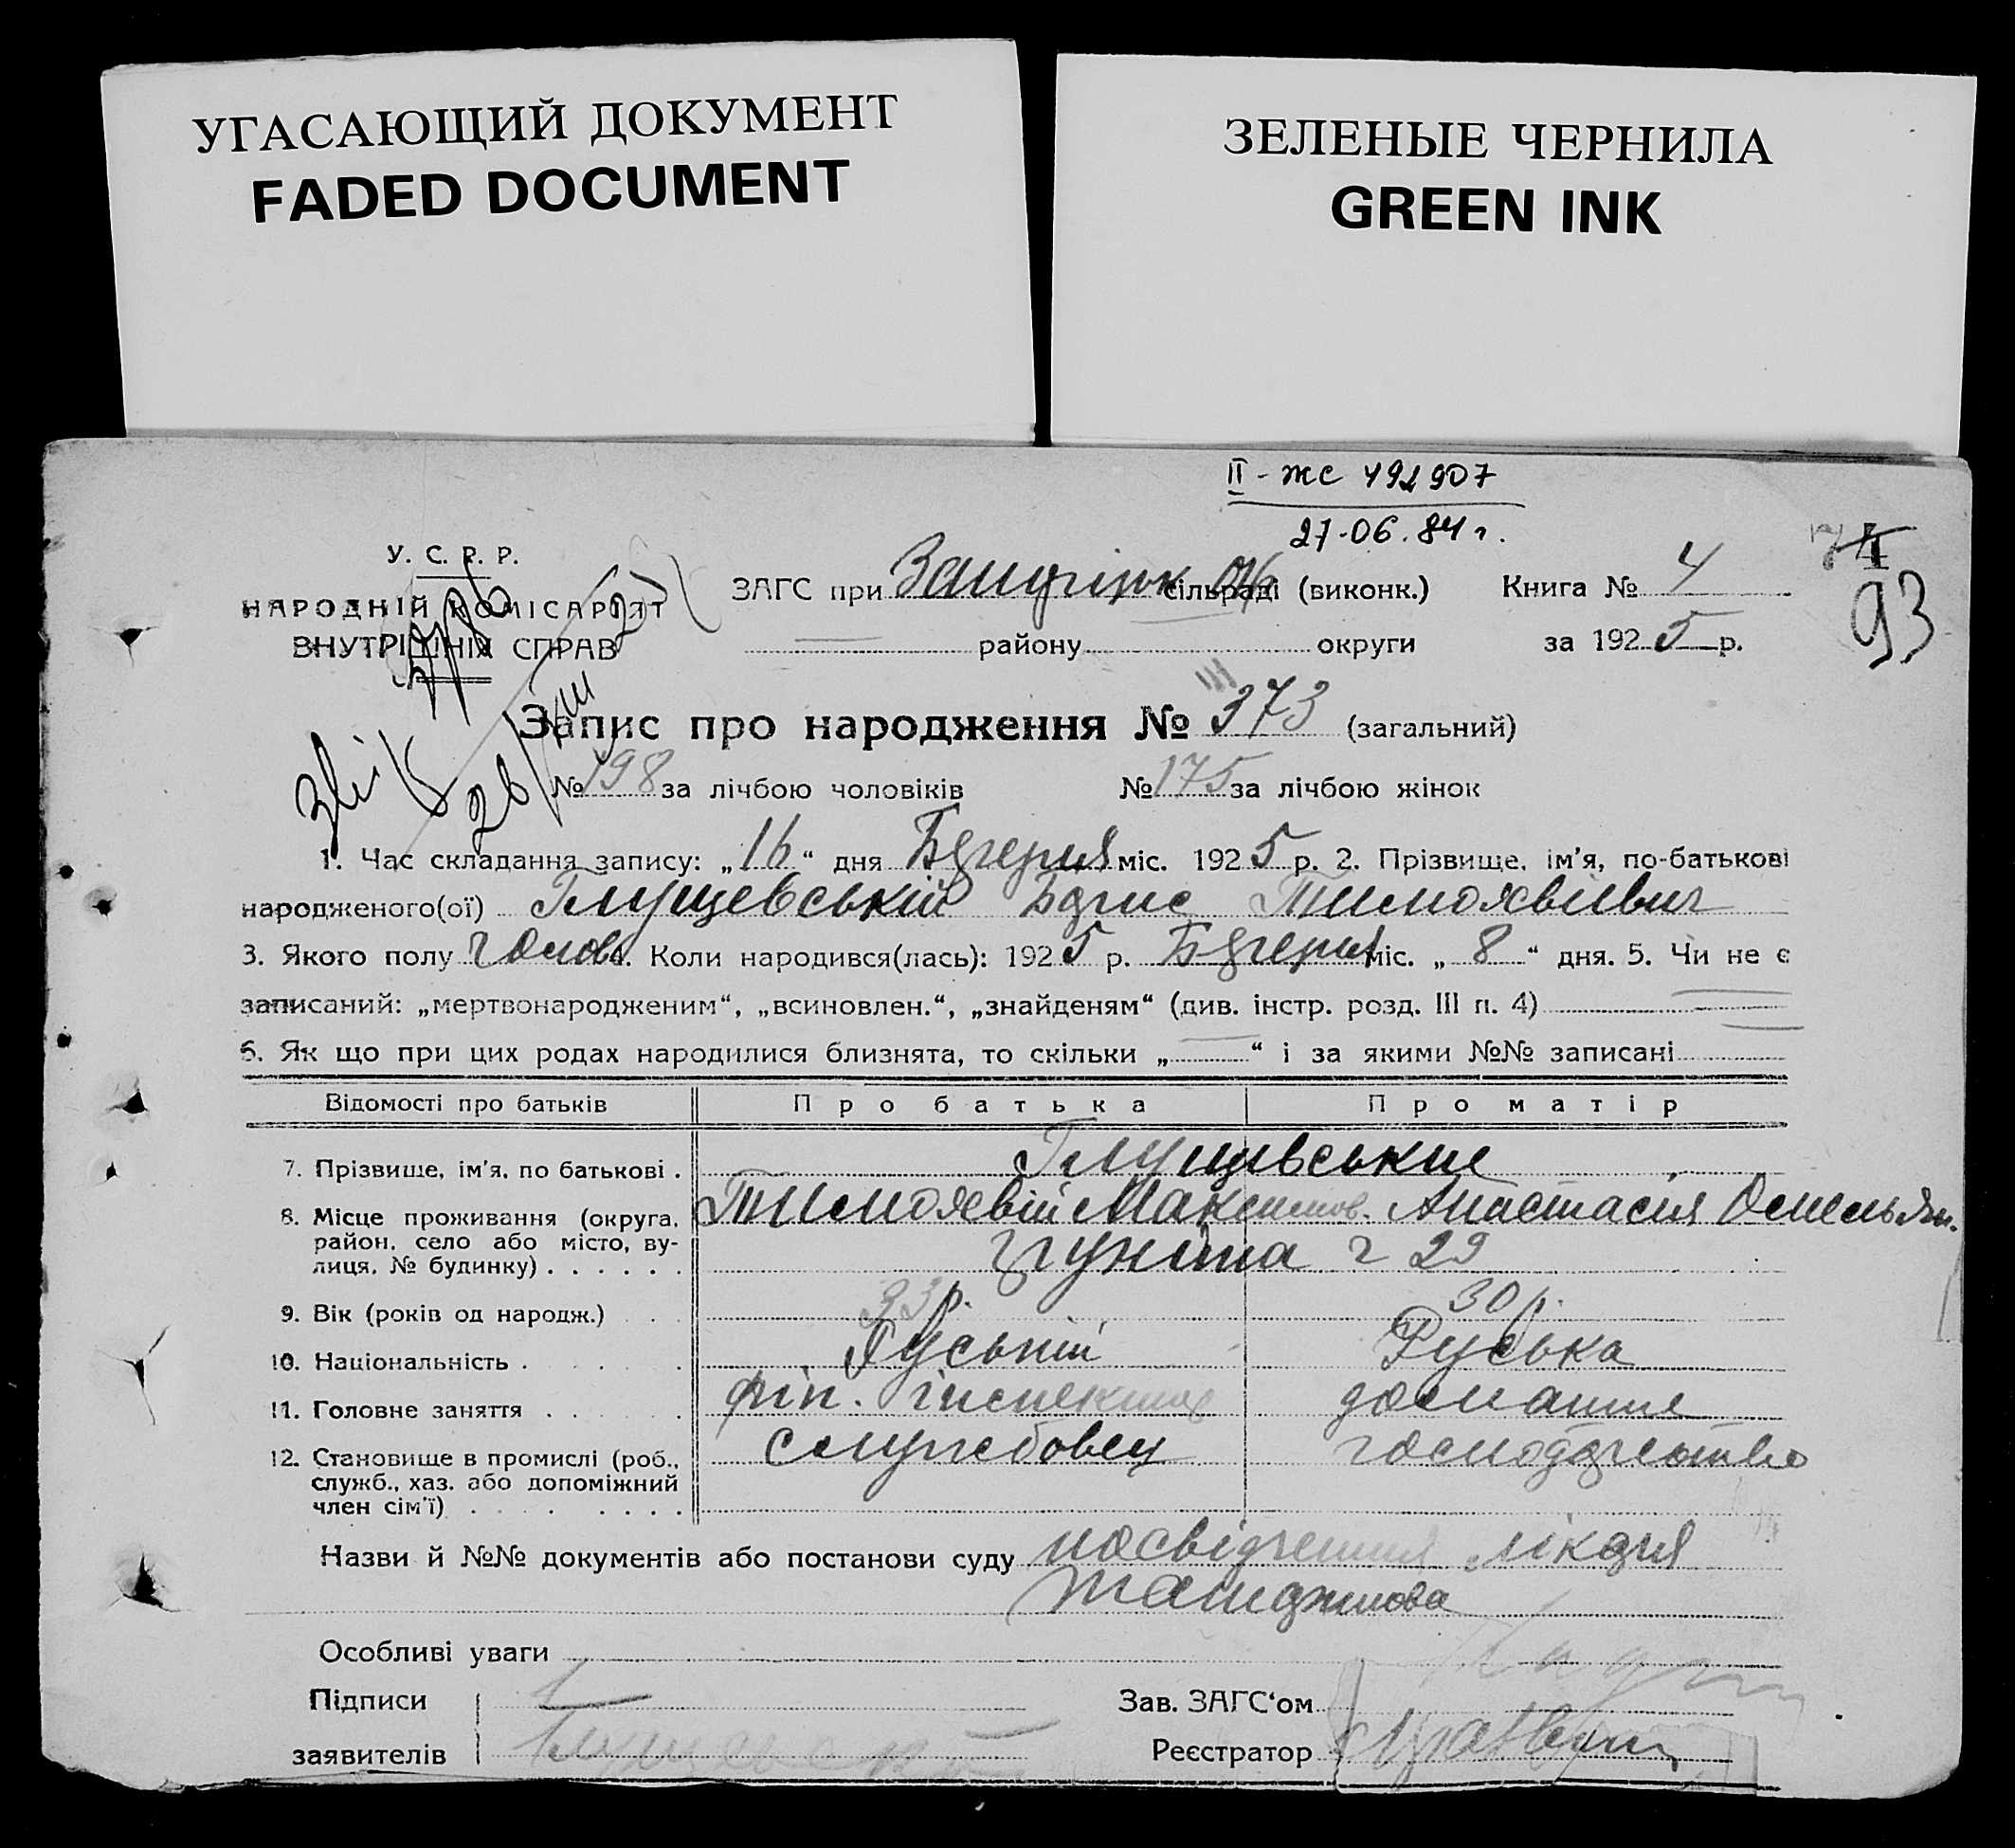 УГАСАЮЩИЙ ДОКУМЕНТ
FADED DOCUMENT
ЗЕЛЕНЫЕ ЧЕРНИЛА
GREEN INK
II - ЖС 492907
27-06.84 г.
У. С. Р. Р.
НАРОДНІЙ КОМІСАРІЯТ
ВНУТРІШНІХ СПРАВ
ЗАГС при сільраді (виконк.) Книга № 4
93
району округи за 1925 р.
Запис про народження № 373 (загальний)
№ 198 за лічбою чоловіків № 175 за лічбою жінок
1. Час складання запису: „16“ дня міс. 1925 р. 2. Прізвище, ім'я, по-батькові
народженого(ої) Глущевській Борис Тимохвієвич
3. Якого полу чолов. 4. Коли народився(лась): 1925 р. міс. „8“ дня. 5. Чи не є
записаний: „мертвонародженим“, „всиновлен.“, „знайденям“ (див. інстр. розд. III п. 4)
6. Як що при цих родах народилися близнята, то скільки „ “ і за якими №№ записані
Відомості про батьків Про батька Про матір
7. Прізвище, ім'я, по батькові .
8. Місце проживання (округа, Тимохвій Максимов. Анастасія Омельян.
район, село або місто, ву-
лиця, № будинку) . . . . . . 29
9. Вік (років од народж.) . . 33 р. 30 р.
10. Національність . . . . . Руський Руська
11. Головне заняття . . . . . фін. інспектор домашне
12. Становище в промислі (роб., службовец господарство
служб., хаз. або допоміжний
член сім'ї) . . . . . . . .
Назви й №№ документів або постанови суду посвідчення лікаря
Особливі уваги
Підписи Зав. ЗАГС'ом
заявителів Реєстратор